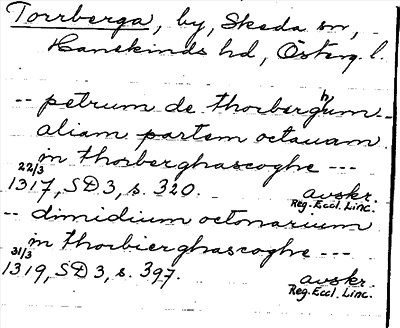 Torrberga, by, Skeda sn,
Hanekinds hd, Österg. l.
-- petrum de thorberghum --
aliam partem octauam
in thorberghascoghe ---
22/3
1317, SD 3, s. 320. avskr.
Reg. Eccl. Linc.
-- dimidium octonarium
in thorbierghascoghe ---
31/3
1319, SD 3, s. 397. avskr.
Reg. Eccl. Linc.